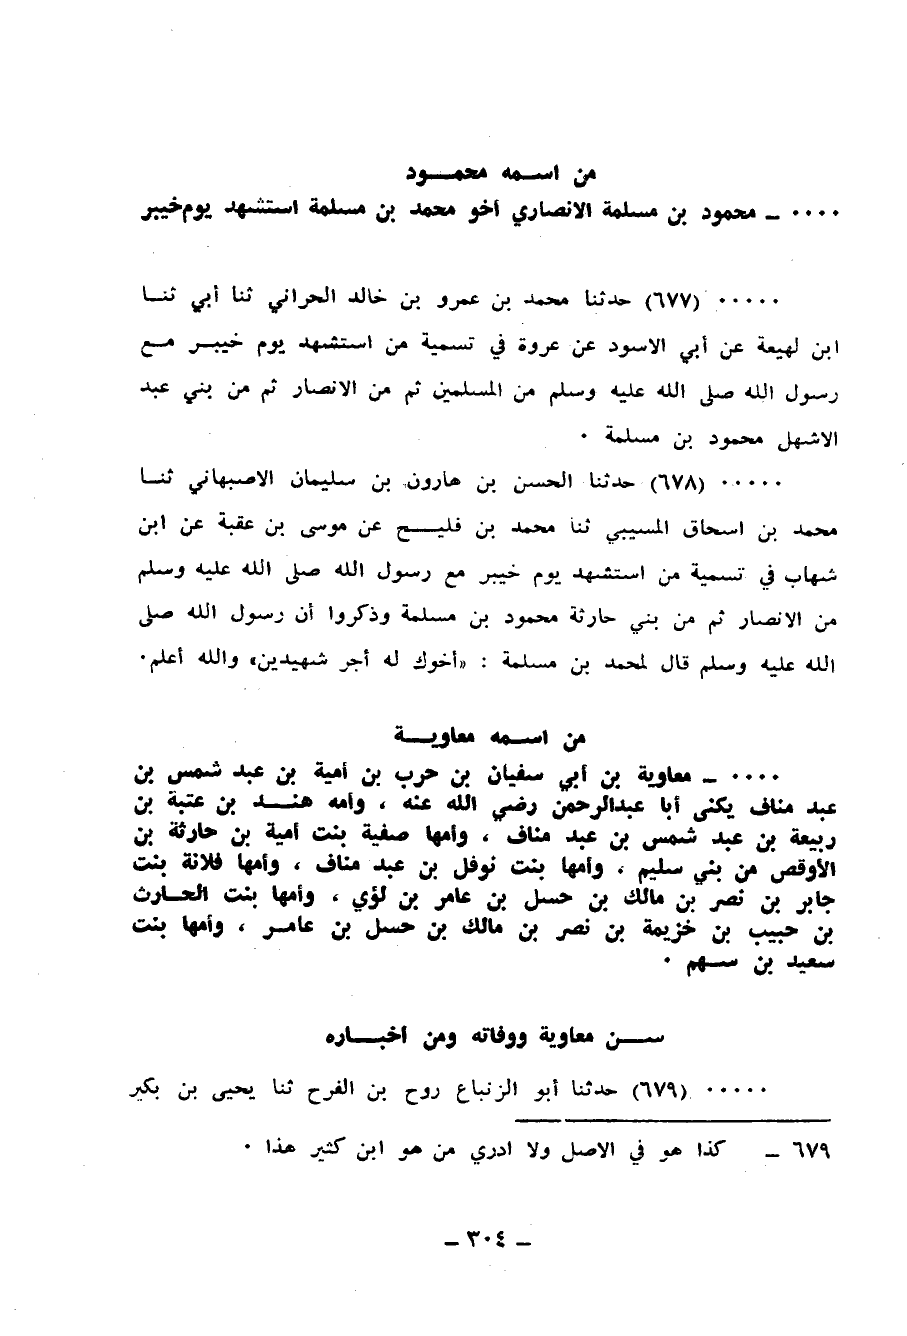 من اسمه محمود
٠٠٠٠ ـ محمود بن مسلمة الانصاري أخو محمد بن مسلمة استشهد يوم خيبر
٠٠٠٠٠ (٦٧٧) حدثنا محمد بن عمرو بن خالد الحراني ثنا أبي ثنا
ابن لهيعة عن أبي الاسود عن عروة في تسمية من استشهد يوم خيبر مع
رسول الله صلى الله عليه وسلم من المسلمين ثم من الانصار ثم من بني عبد
الاشهل محمود بن مسلمة ٠
٠٠٠٠٠ (٦٧٨) حدثنا الحسن بن هارون بن سليمان الاصبهاني ثنا
محمد بن اسحاق المسيبي ثنا محمد بن فليح عن موسى بن عقبة عن ابن
شهاب في تسمية من استشهد يوم خيبر مع رسول الله صلى الله عليه وسلم
من الانصار ثم من بني حارثة محمود بن مسلمة وذكروا أن رسول الله صلى
الله عليه وسلم قال لمحمد بن مسلمة : «أخوك له أجر شهيدين» والله أعلم٠
من اسمه معاوية
٠٠٠٠ ـ معاوية بن أبي سفيان بن حرب بن أمية بن عبد شمس بن
عبد مناف يكنى أبا عبدالرحمن رضي الله عنه ، وأمه هند بن عتبة بن
ربيعة بن عبد شمس بن عبد مناف ، وأمها صفية بنت أمية بن حارثة بن
الأوقص من بني سليم ، وأمها بنت نوفل بن عبد مناف ، وأمها فلانة بنت
جابر بن نصر بن مالك بن حسل بن عامر بن لؤي ، وأمها بنت الحارث
بن حبيب بن خزيمة بن نصر بن مالك بن حسل بن عامر ، وأمها بنت
سعيد بن سهم ٠
سن معاوية ووفاته ومن أخباره
٠٠٠٠٠ (٦٧٩) حدثنا أبو الزنباع روح بن الفرح ثنا يحيى بن بكير
٦٧٩ ـ كذا هو في الاصل ولا ادري من هو ابن كثير هذا ٠
ـ ٣٠٤ ـ